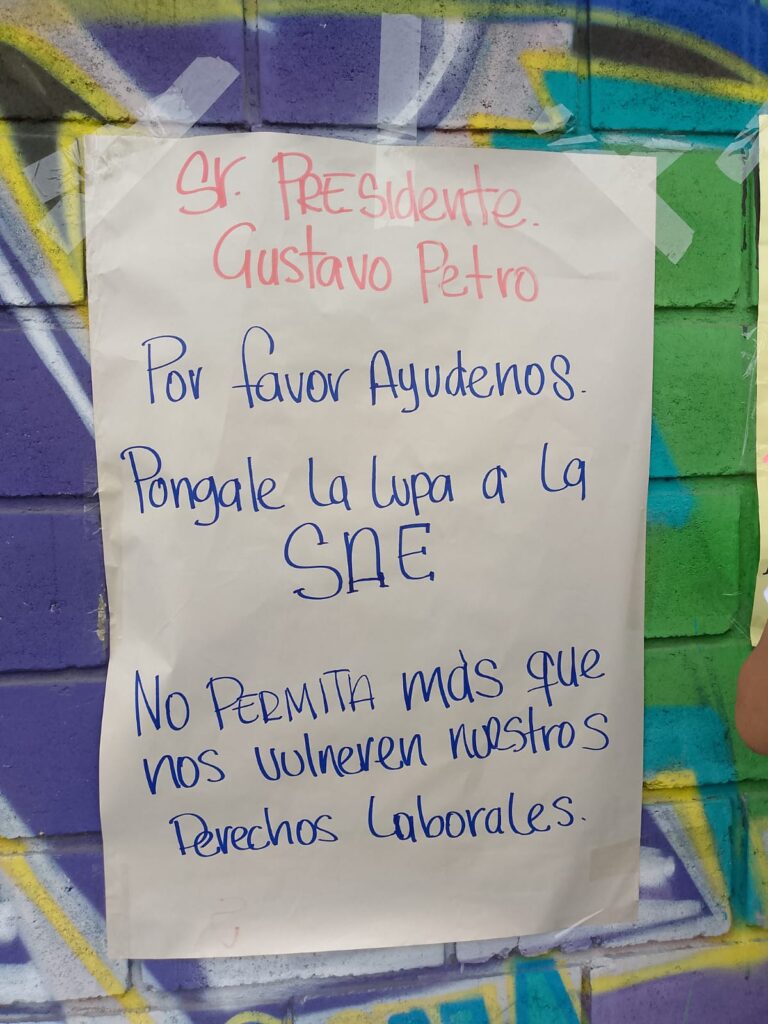 Sr. PRESidente.
Gustavo Petro
Por favor Ayudenos.
Pongale la lupa a la
SAE
No PERMITA más que
nos vulneren nuestros
Derechos laborales.